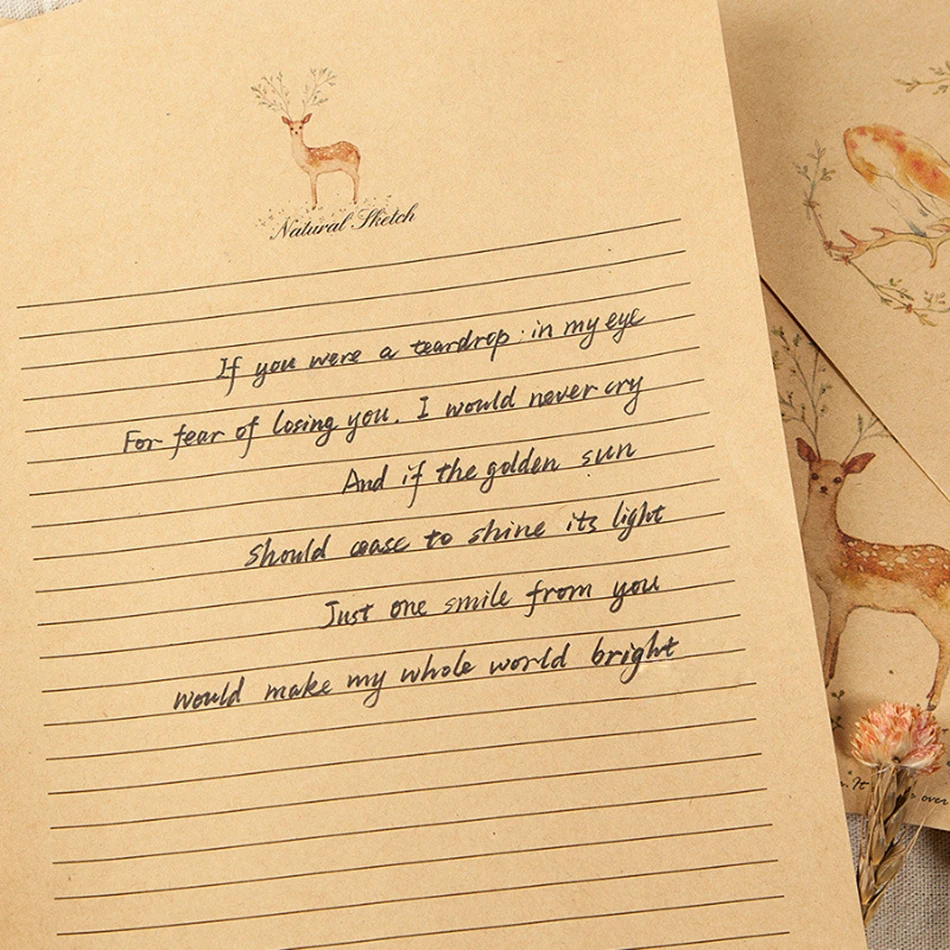 Natural Sketch
If you were a teardrop : in my eye
For fear of losing you. I would never cry
And if the golden sun
Should cease to shine its light
Just one smile from you
would make my whole world bright
It
over